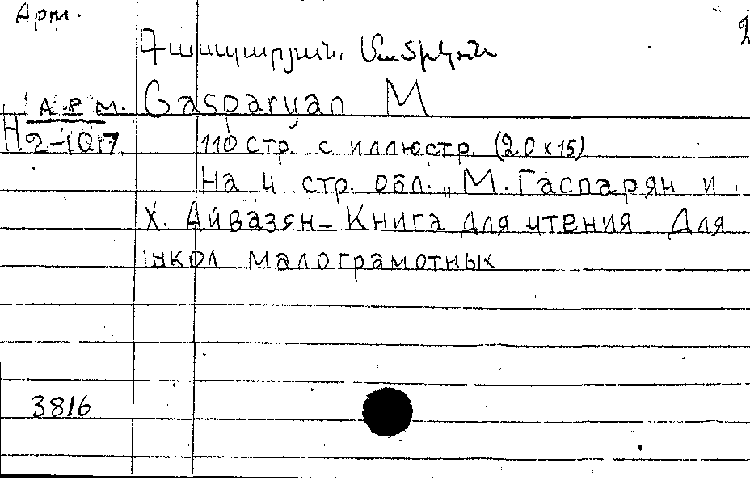 Арт.
2
Գասպարյան,
АРМ. Gasparyan M
H 2-1017 110 стр. с иллюстр. (20x15)
На 4 стр. обл. „М. Гаспарян и
Х. Айвазян - Книга для чтения. Для
школ малограмотных
3816